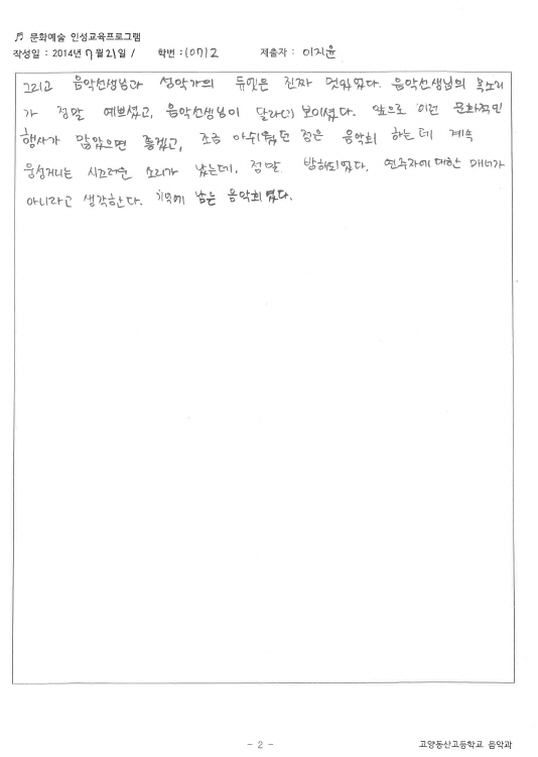 ♬ 문화예술 인성교육프로그램
작성일 : 2014년 7월 21일 / 학번 : 10712 제출자 : 이지윤
그리고 음악선생님과 성악가의 듀엣은 진짜 멋있었다. 음악선생님의 목소리
가 정말 예쁘셨고, 음악선생님이 달라(?) 보이셨다. 앞으로 이런 문화적인
행사가 많았으면 좋겠고, 조금 아쉬웠던 점은 음악회 하는데 계속
웅성거리는 시끄러운 소리가 났는데, 정말 방해되었다. 연주자에 대한 매너가
아니라고 생각한다. 기억에 남는 음악회였다.
- 2 -
고양동산고등학교 음악과